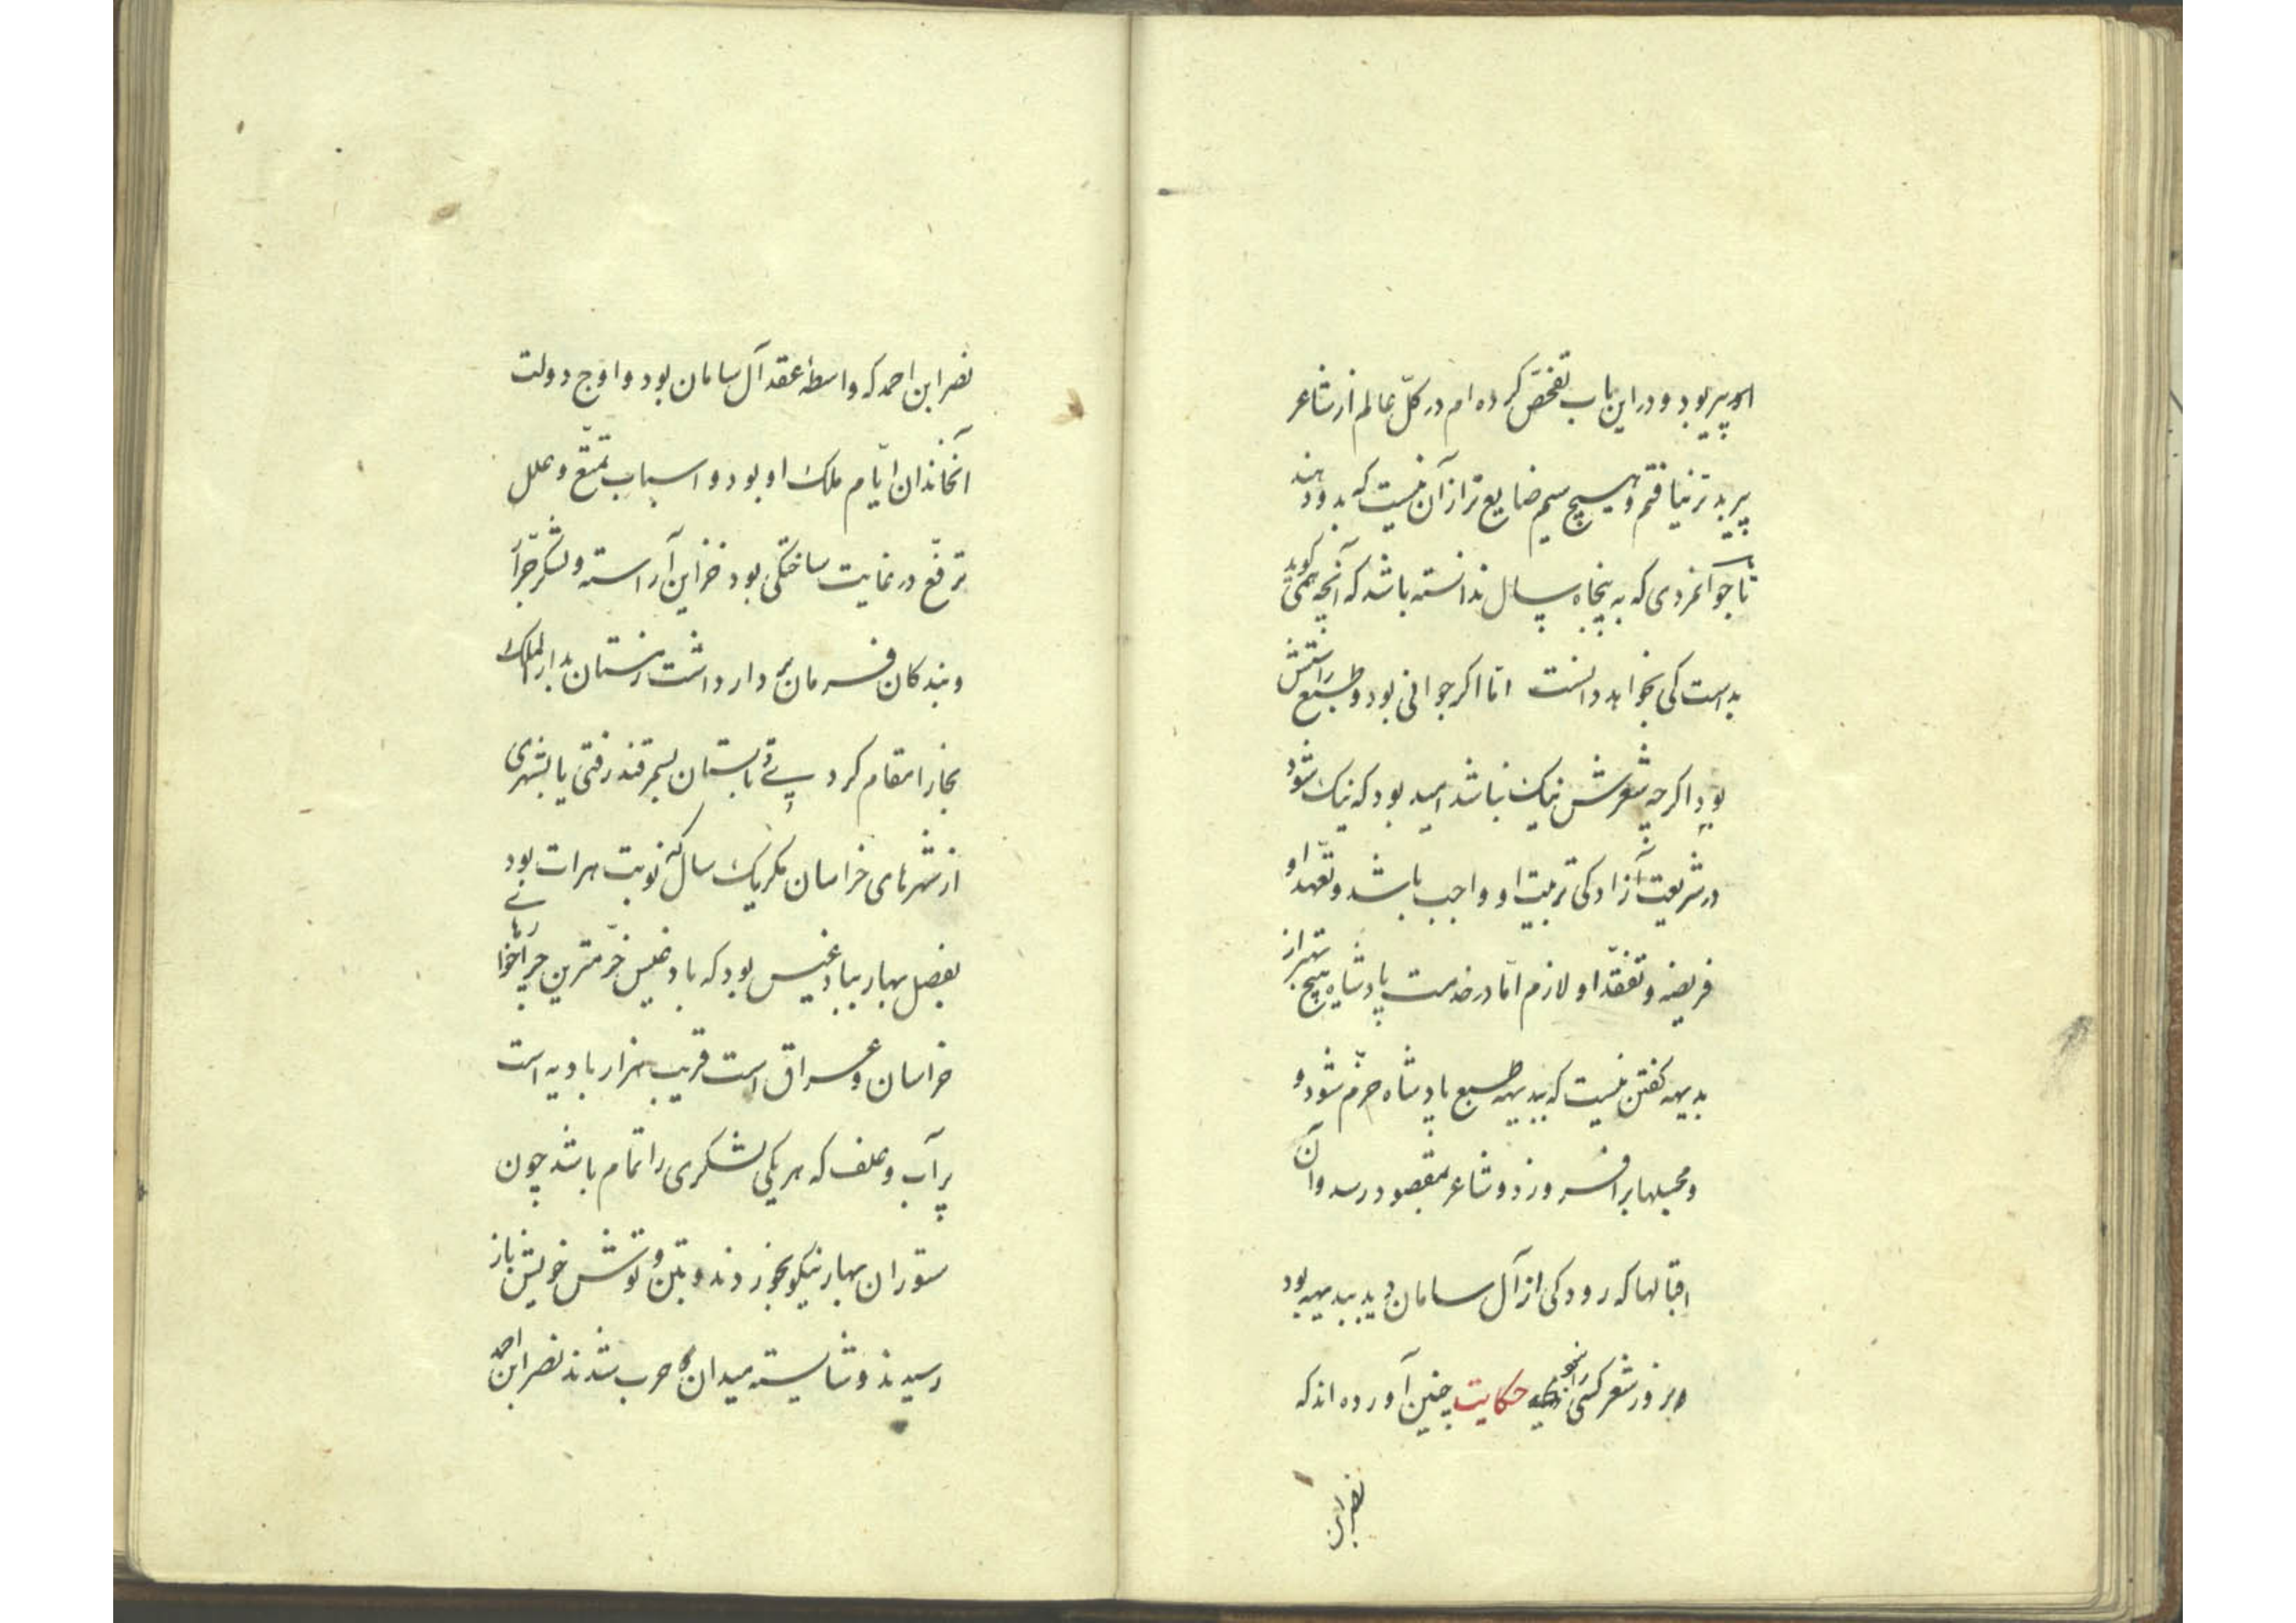 اگر پیر بود و در این باب تفحّص کرده‌ام در کلّ عالم از شاعر
پیر بدتر نیافتم و هیچ سیم ضایع تر از آن نیست که بدو دهند
ناجوانمردی که به پنجاه سال ندانسته باشد که آنچه همی کوید
بد است کی بخواهد دانست امّا اکر جوانی بود و طبع راستش
بود اکرچه شعرش نیک نباشد امید بود که نیک شود
در شریعت آزادکی تربیت او واجب باشد و تعهّد او
فریضه و تفقّد او لازم امّا در خدمت پادشاه هیچ بهتر از
بدیهه کفتن نیست که ببدیهه طبع پادشاه خرّم شود و
و مجلسها برافروزد و شاعر بمقصود رسد و آن
اقبالها که رودکی از آل سامان دید ببدیهه بود
و بزور شعر کسی حکایت چنین آورده‌اند که
نصر ابن
نصر ابن احمد که واسطهٔ عقد آل سامان بود و اوج دولت
آنخاندان ایّام ملک او بود و اسباب تمتّع و علل
ترفّع در غایت ساختکی بود خزاین آراسته و لشکر جرّار
و بندکان فرمان بردار داشت زمستان بدارالملک
بخارا مقام کردی و تابستان بسمرقند رفتی یا بشهری
از شهرهای خراسان مکر یک سال که نوبت هرات بود
بفصل بهار ببادغیس بود که بادغیس خرّمترین چراخوارهای
خراسان و عراق است قریب هزار بادیه است
پر آب و علف که هر یکی لشکری را تمام باشد چون
ستوران بهار نیکو بخوردند و بتن و توش خویش باز
رسیدند و شایسته میدان و حرب شدند نصر ابن احمد